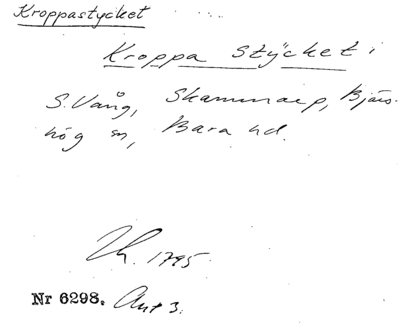 Kroppastycket
Kroppa Stycket i
S. Vång, Skammarp, Bjärs-
hög sn, Bara hd.
1795.
Nr 6298.